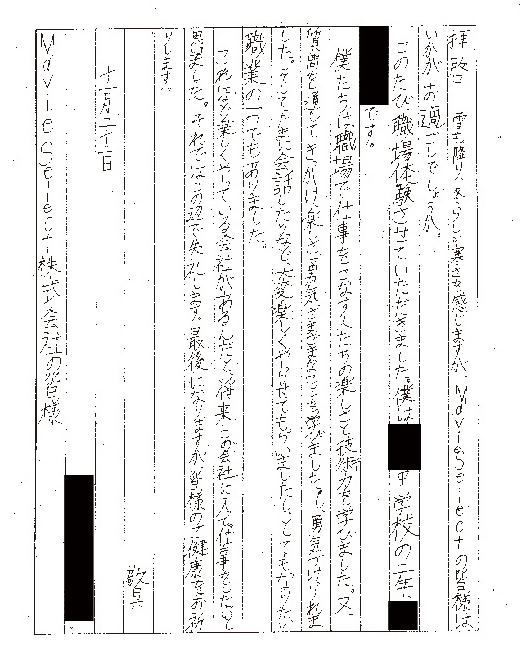 拝啓 雪も降り、冬らしい寒さを感じますが、MovieSelectの皆様は
いかがお過ごしでしょうか。
このたび職場体験させていただきました。僕は 中学校の二年
です。
僕たちは職場で仕事をこなす人たちの楽しさと技術力を学びました。又
質問を通して、楽しさ、勇気、さまざまなことも学びました。
した。そして大変楽しくやらせてもらいましたし、とても
職業の一つでもありました。
こんなに楽しくやっている会社があるんだと、将来この会社に入って仕事をしたいと
思いました。それではこの辺で失礼します。最後になりますが、皆様のご健康をお祈
りします。
敬具
十一月二十一日
MovieSelect株式会社の皆様